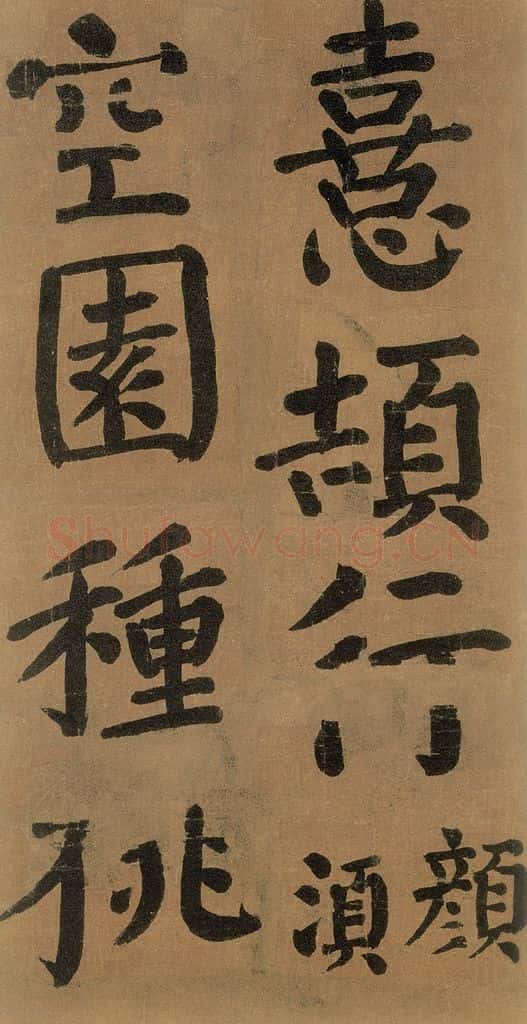 憙頡行顔湏
空園種桃
Shufawang.CN